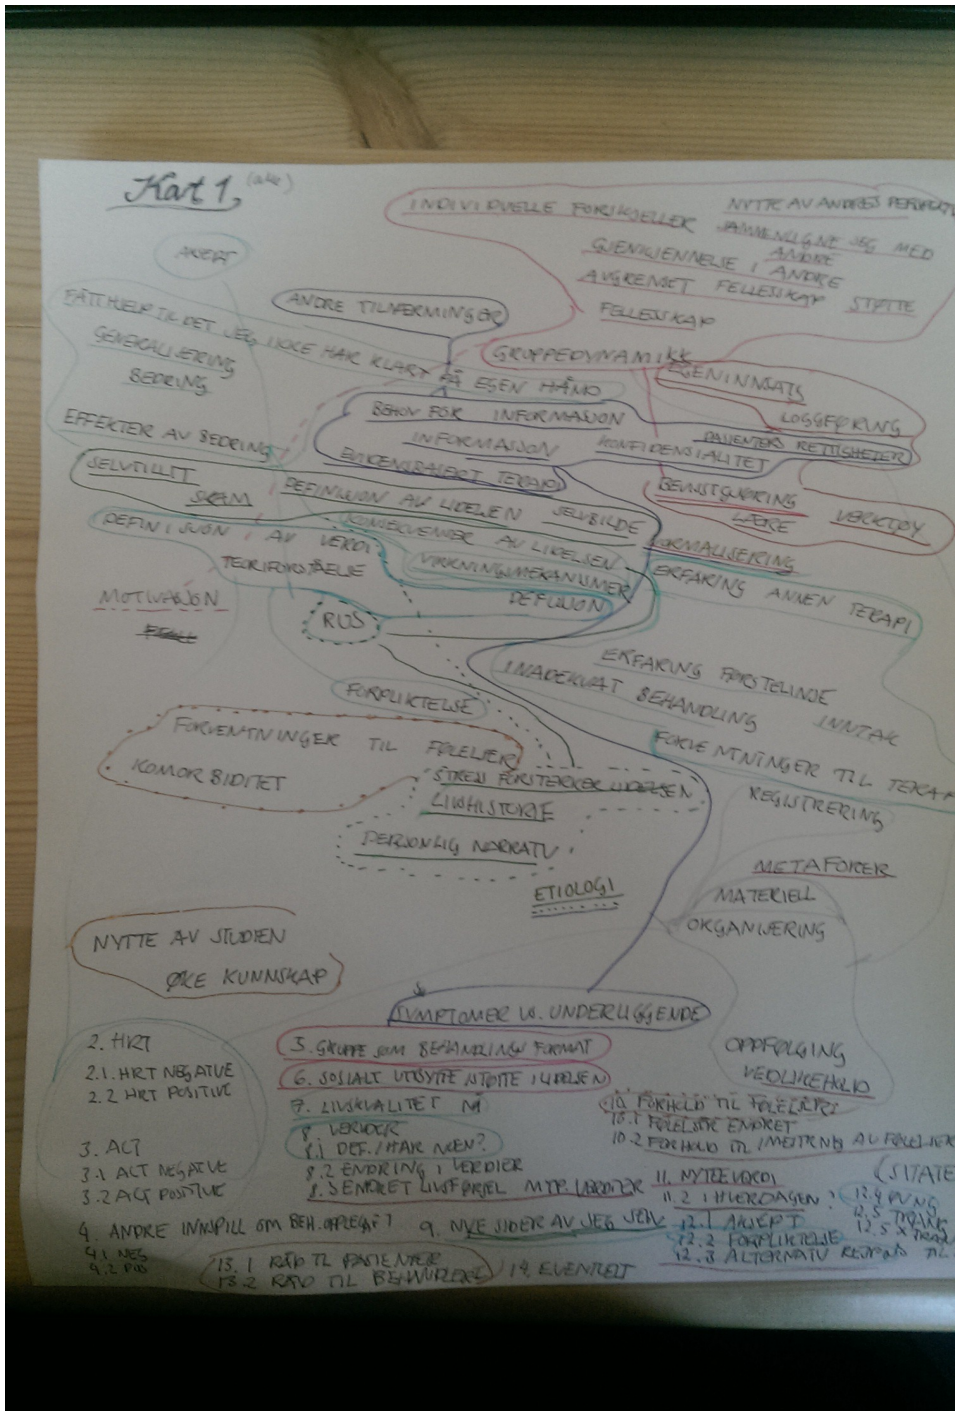 Kart 1,
INDIVIDUELLE FORSKJELLER
NYTTE AV ANDRES
SAMMENLIGNE SEG MED
ANDRE
GJENKJENNELSE I ANDRE
AVGRENSET FELLESSKAP STØTTE
FELLESSKAP
AKSEPT
ANDRE TILNÆRMINGER
FÅTT HJELP TIL DET JEG IKKE HAR KLART PÅ EGEN HÅND
GENERALISERING
BEDRING
GRUPPEDYNAMIKK
EGENINNSATS
LOGGFØRING
BEHOV FOR INFORMASJON
PASIENTERS RETTIGHEDER
INFORMASJON KONFIDENSIALITET
EFFEKTER AV BEDRING
EVIDENSBASERT TERAPI
SELVTILLIT
SKAM
DEFINISJON AV LIDELSEN SELVBILDE
BEVISSTGJØRING
LÆRE
VERKTØY
DEFINISJON AV VERDI
KONSEKVENSER AV LIDELSEN
NORMALISERING
VIRKNINGSMEKANISMER
ERFARING ANNEN TERAPI
TEORIFORSTÅELSE
DEFUSJON
MOTIVASJON
RUS
ERFARING FØRSTELINJE
INADEKVAT BEHANDLING
INNTAK
FORPLIKTELSE
FORVENTNINGER TIL FØLELSER
FORVENTNINGER TIL
KOMORBIDITET
STRESS FORSTERKER LIDELSEN
REGISTRERING
LIVSHISTORIE
PERSONLIG NARRATIV
METAFORER
ETIOLOGI
MATERIELL
ORGANISERING
NYTTE AV STUDIEN
ØKE KUNNSKAP
SYMPTOMER VS. UNDERLIGGENDE
OPPFØLGING
VEDLIKEHOLD
2. HRT
2.1. HRT NEGATIVE
2.2 HRT POSITIVE
3. ACT
3.1 ACT NEGATIVE
3.2 ACT POSITIVE
4. ANDRE INNSPILL OM BEH.OPPLEGGET
4.1 NEG
4.2 POS
5. GRUPPE SOM BEHANDLINGSFORMAT
6. SOSIALT UTBYTTE STØTTE I LIDELSEN
7. LIVSKVALITET NÅ
8. VERDIER
8.1 DEF. / HAR NOEN?
8.2 ENDRING I VERDIER
8.3 ENDRET LIVSFØRSEL MTP. VERDIER
9. NYE SIDER AV SEG SELV
10. FORHOLD TIL FØLELSER
10.1 FØLELSER ENDRET
10.2 FORHOLD TIL / MESTRING AV FØLELSER
11. NYTTEVERDI
11.2 I HVERDAGEN?
12.1 AKSEPT
12.2 FORPLIKTELSE
12.3 ALTERNATIV RESPONS TIL
12.4
12.5 TRANG
13.1 RÅD TIL PASIENTER
13.2 RÅD TIL BEHANDLERE
14. EVENTUELT